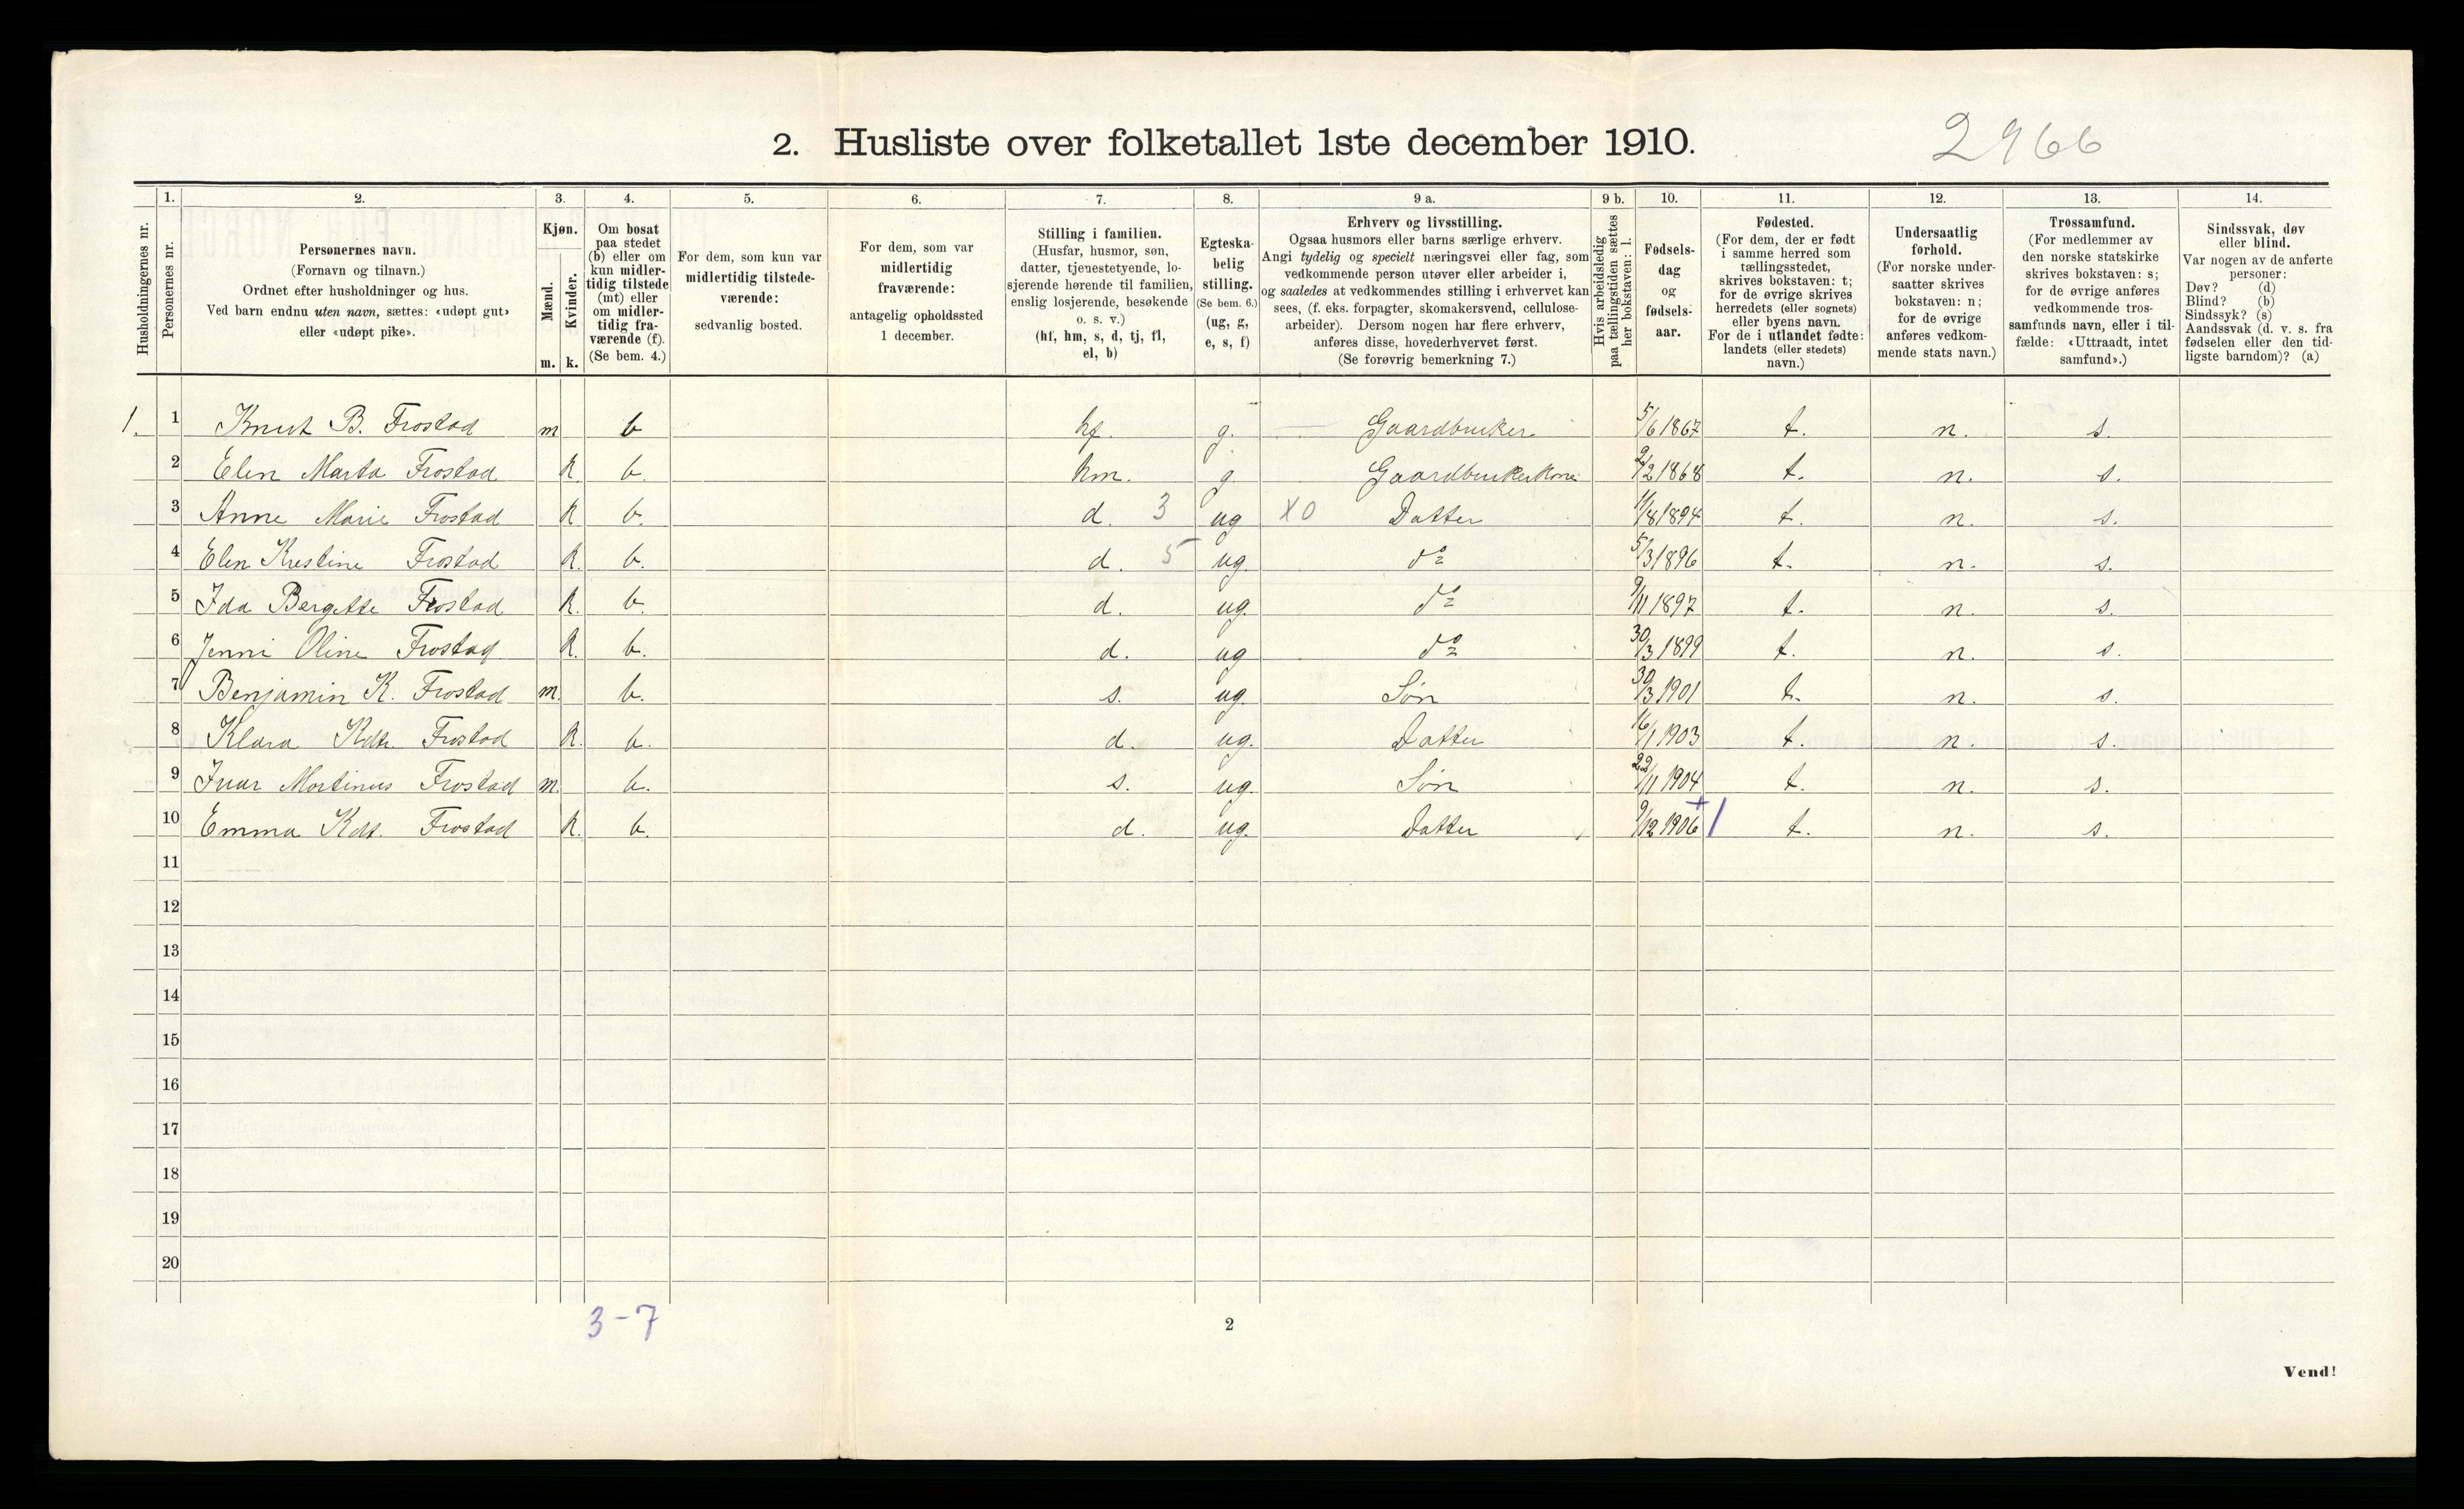 2. Husliste over folketallet 1ste december 1910.
2966
Husholdningernes nr.
1.
Personernes nr.
2.
Personernes navn.
(Fornavn og tilnavn.)
Ordnet efter husholdninger og hus.
Ved barn endnu uten navn, sættes: «udøpt gut»
eller «udøpt pike».
3.
Kjøn.
Mænd.
Kvinder.
m. k.
4.
Om bosat
paa stedet
(b) eller om
kun midler-
tidig tilstede
(mt) eller
om midler-
tidig fra-
værende (f).
(Se bem. 4.)
5.
For dem, som kun var
midlertidig tilstede-
værende:
sedvanlig bosted.
6.
For dem, som var
midlertidig
fraværende:
antagelig opholdssted
1 december.
7.
Stilling i familien.
(Husfar, husmor, søn,
datter, tjenestetyende, lo-
sjerende hørende til familien,
enslig losjerende, besøkende
o. s. v.)
(hf, hm, s, d, tj, fl,
el, b)
8.
Egteska-
belig
stilling.
(Se bem. 6.)
(ug, g,
e, s, f)
9 a.
Erhverv og livsstilling.
Ogsaa husmors eller barns særlige erhverv.
Angi tydelig og specielt næringsvei eller fag, som
vedkommende person utøver eller arbeider i,
og saaledes at vedkommendes stilling i erhvervet kan
sees, (f. eks. forpagter, skomakersvend, cellulose-
arbeider). Dersom nogen har flere erhverv,
anføres disse, hovederhvervet først.
(Se forøvrig bemerkning 7.)
9 b.
Hvis arbeidsledig
paa tællingstiden sættes
her bokstaven: l.
10.
Fødsels-
dag
og
fødsels-
aar.
11.
Fødested.
(For dem, der er født
i samme herred som
tællingsstedet,
skrives bokstaven: t;
for de øvrige skrives
herredets (eller sognets)
eller byens navn.
For de i utlandet fødte:
landets (eller stedets)
navn.)
12.
Undersaatlig
forhold.
(For norske under-
saatter skrives
bokstaven: n;
for de øvrige
anføres vedkom-
mende stats navn.)
13.
Trossamfund.
(For medlemmer av
den norske statskirke
skrives bokstaven: s;
for de øvrige anføres
vedkommende tros-
samfunds navn, eller i til-
fælde: «Uttraadt, intet
samfund».)
14.
Sindssvak, døv
eller blind.
Var nogen av de anførte
personer:
Døv? (d)
Blind? (b)
Sindssyk? (s)
Aandssvak (d. v. s. fra
fødselen eller den tid-
ligste barndom)? (a)
1. 1 Knut B. Frostad m b hf. g. Gaardbruker 5/6 1867 t. n. s.
2 Elen Marta Frostad k b. hm. g. Gaardbrukerkone 2/2 1868 t. n. s.
3 Anne Marie Frostad k b. d. 3 ug X0 Datter 11/8 1894 t. n. s.
4 Elen Kristine Frostad k. b. d. 5 ug. do 5/3 1896 t. n. s.
5 Ida Bergitte Frostad k. b. d. ug. do 9/11 1897 t. n. s.
6 Jenni Oline Frostad k. b. d. ug do 30/3 1899 t. n. s.
7 Benjamin K. Frostad m. b. s. ug. Søn 30/3 1901 t. n. s.
8 Klara Kdtr. Frostad k. b. d. ug. Datter 16/1 1903 t. n. s.
9 Ivar Martinus Frostad m. b. s. ug. Søn 22/11 1904 t. n. s.
10 Emma Kdt. Frostad k. b. d. ug. Datter 9/12 1906 + / t. n. s.
11
12
13
14
15
16
17
18
19
20
3-7
2
Vend!